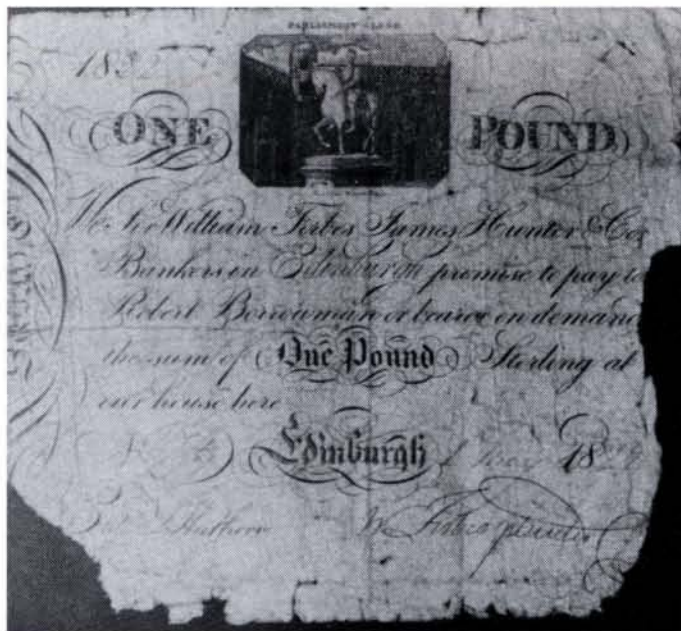 PARLIAMENT CLOSE
ONE POUND
We Sir William Forbes James Hunter & Co.
Bankers in Edinburgh promise to pay to
Robert Borrowman or bearer on demand
the sum of One Pound Sterling at
our house here
Edinburgh 18